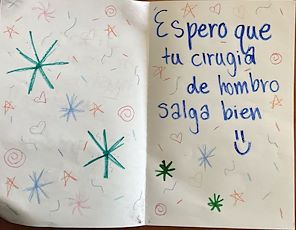 Espero que
tu cirugía
de hombro
salga bien